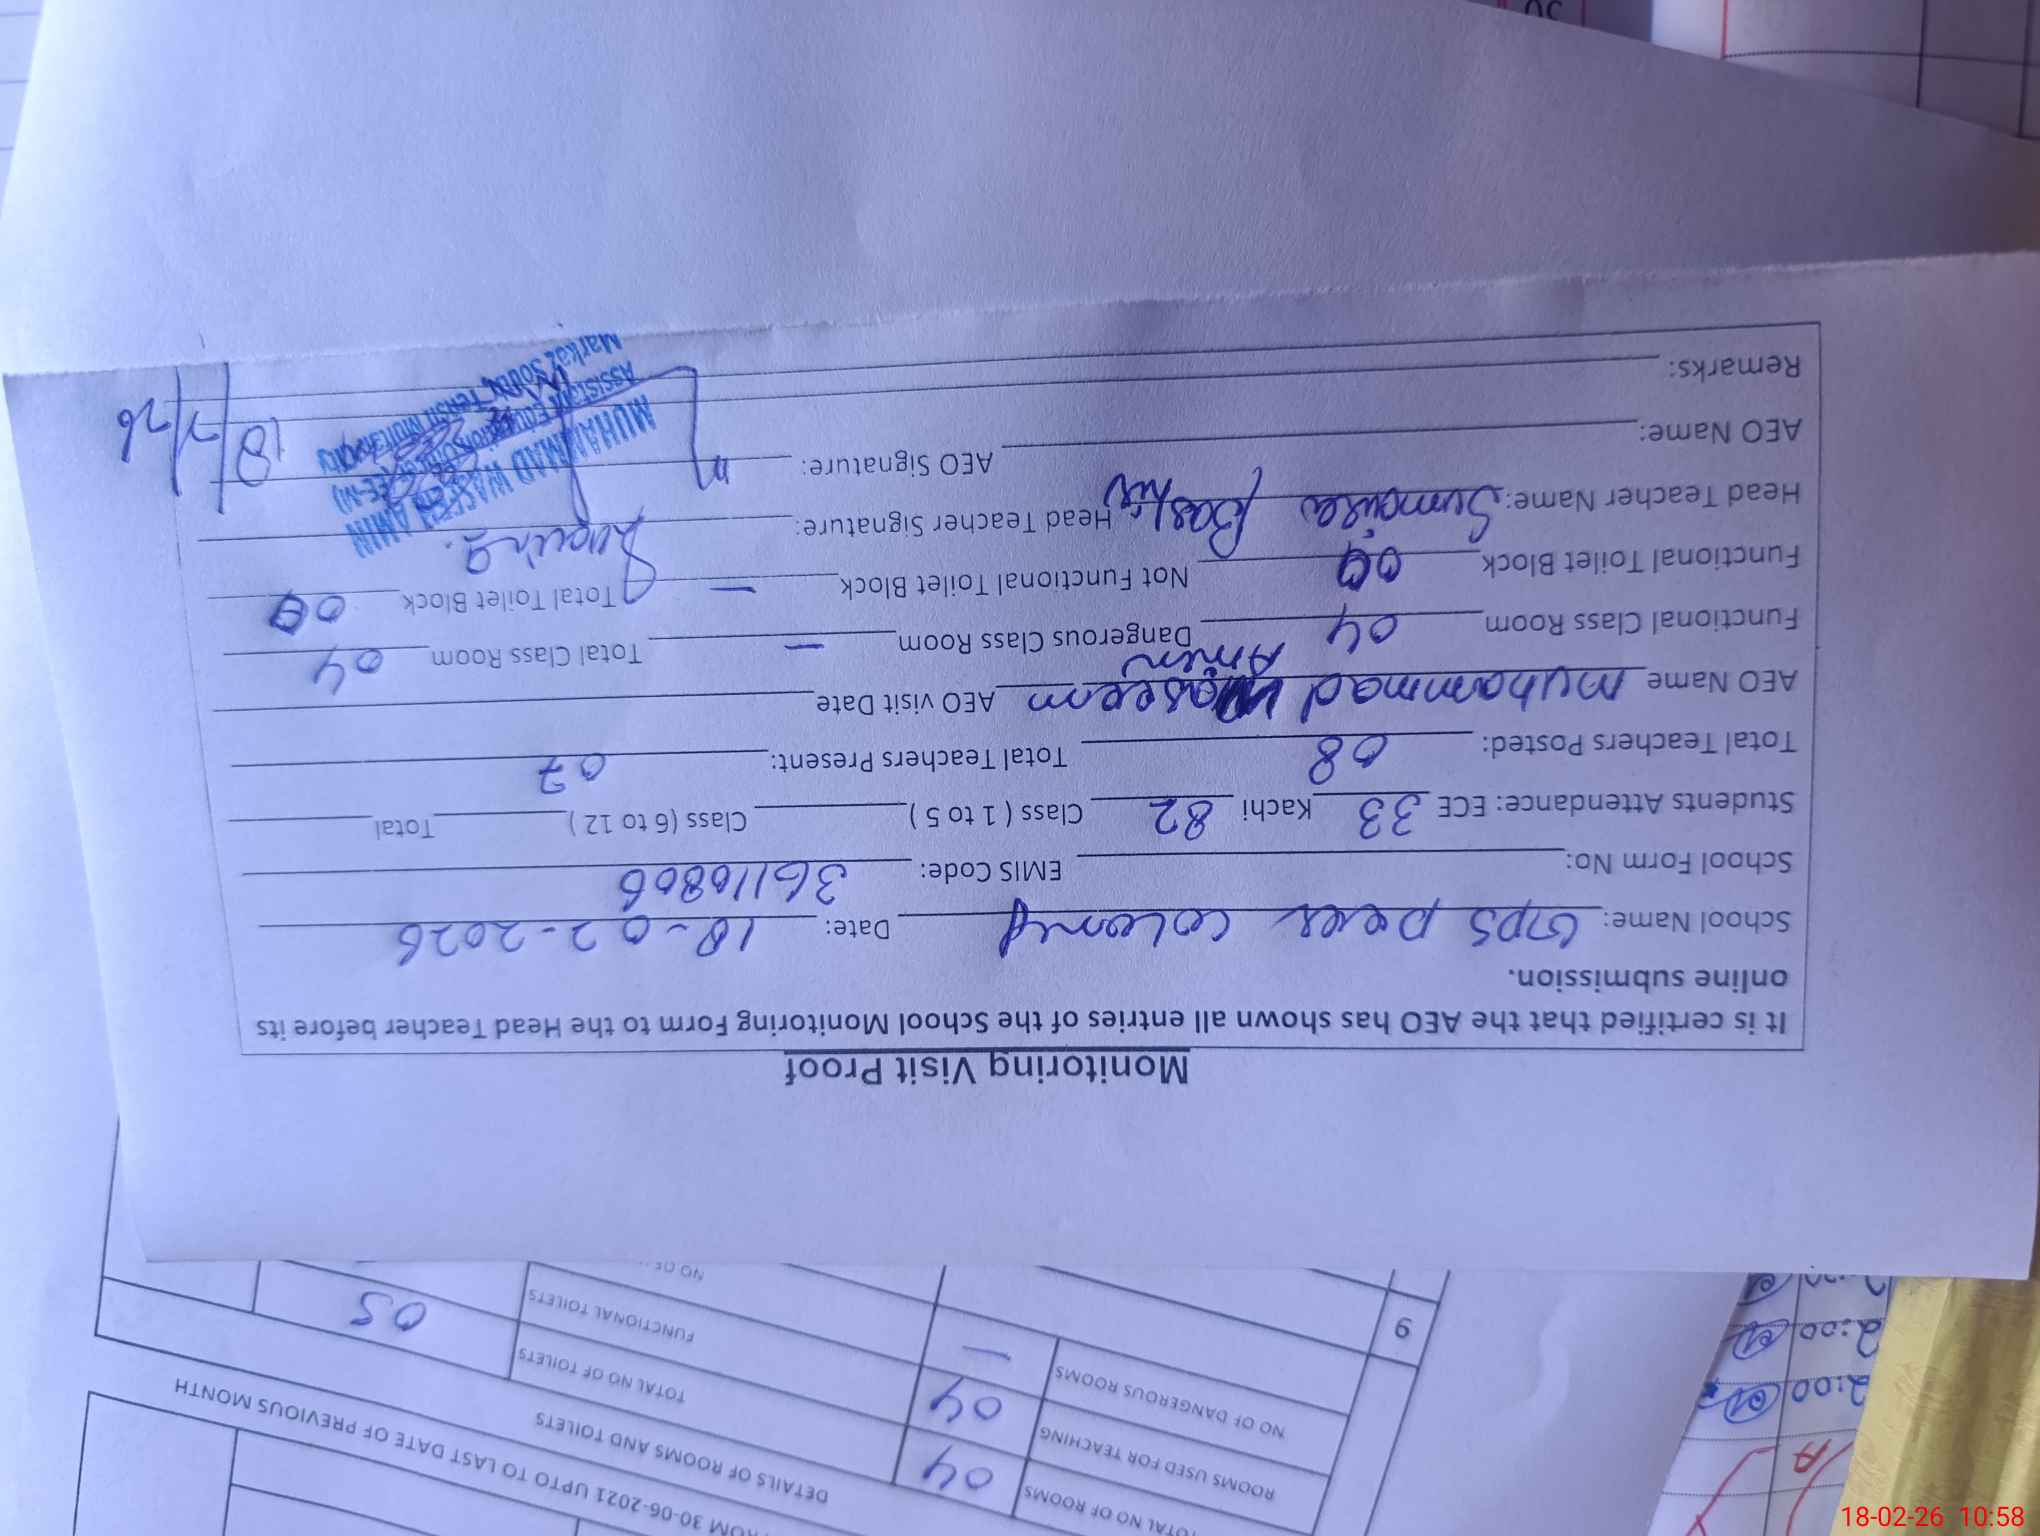 Monitoring Visit Proof
It is certified that the AEO has shown all entries of the School Monitoring Form to the Head Teacher before its
online submission.
School Name: GPS peer colony Date: 18-02-2026
School Form No: EMIS Code: 36110806
Students Attendance: ECE 33 Kachi 82 Class ( 1 to 5 ) Class (6 to 12 ) Total
Total Teachers Posted: 08 Total Teachers Present: 07
AEO Name Muhammad Waseem Amin AEO visit Date
Functional Class Room 04 Dangerous Class Room - Total Class Room 04
Functional Toilet Block Not Functional Toilet Block - Total Toilet Block
Head Teacher Name: Sumaira Bashir Head Teacher Signature:
AEO Name: AEO Signature: 18/2/26
Remarks:
MUHAMMAD WASEEM AMIN
Markaz
FROM 30-06-2021 UPTO TO LAST DATE OF PREVIOUS MONTH
DETAILS OF ROOMS AND TOILETS
TOTAL NO OF ROOMS 04 TOTAL NO OF TOILETS 05
ROOMS USED FOR TEACHING 04 FUNCTIONAL TOILETS
NO OF DANGEROUS ROOMS - NO OF
9
2:00
2:00
A
18-02-26 10:58